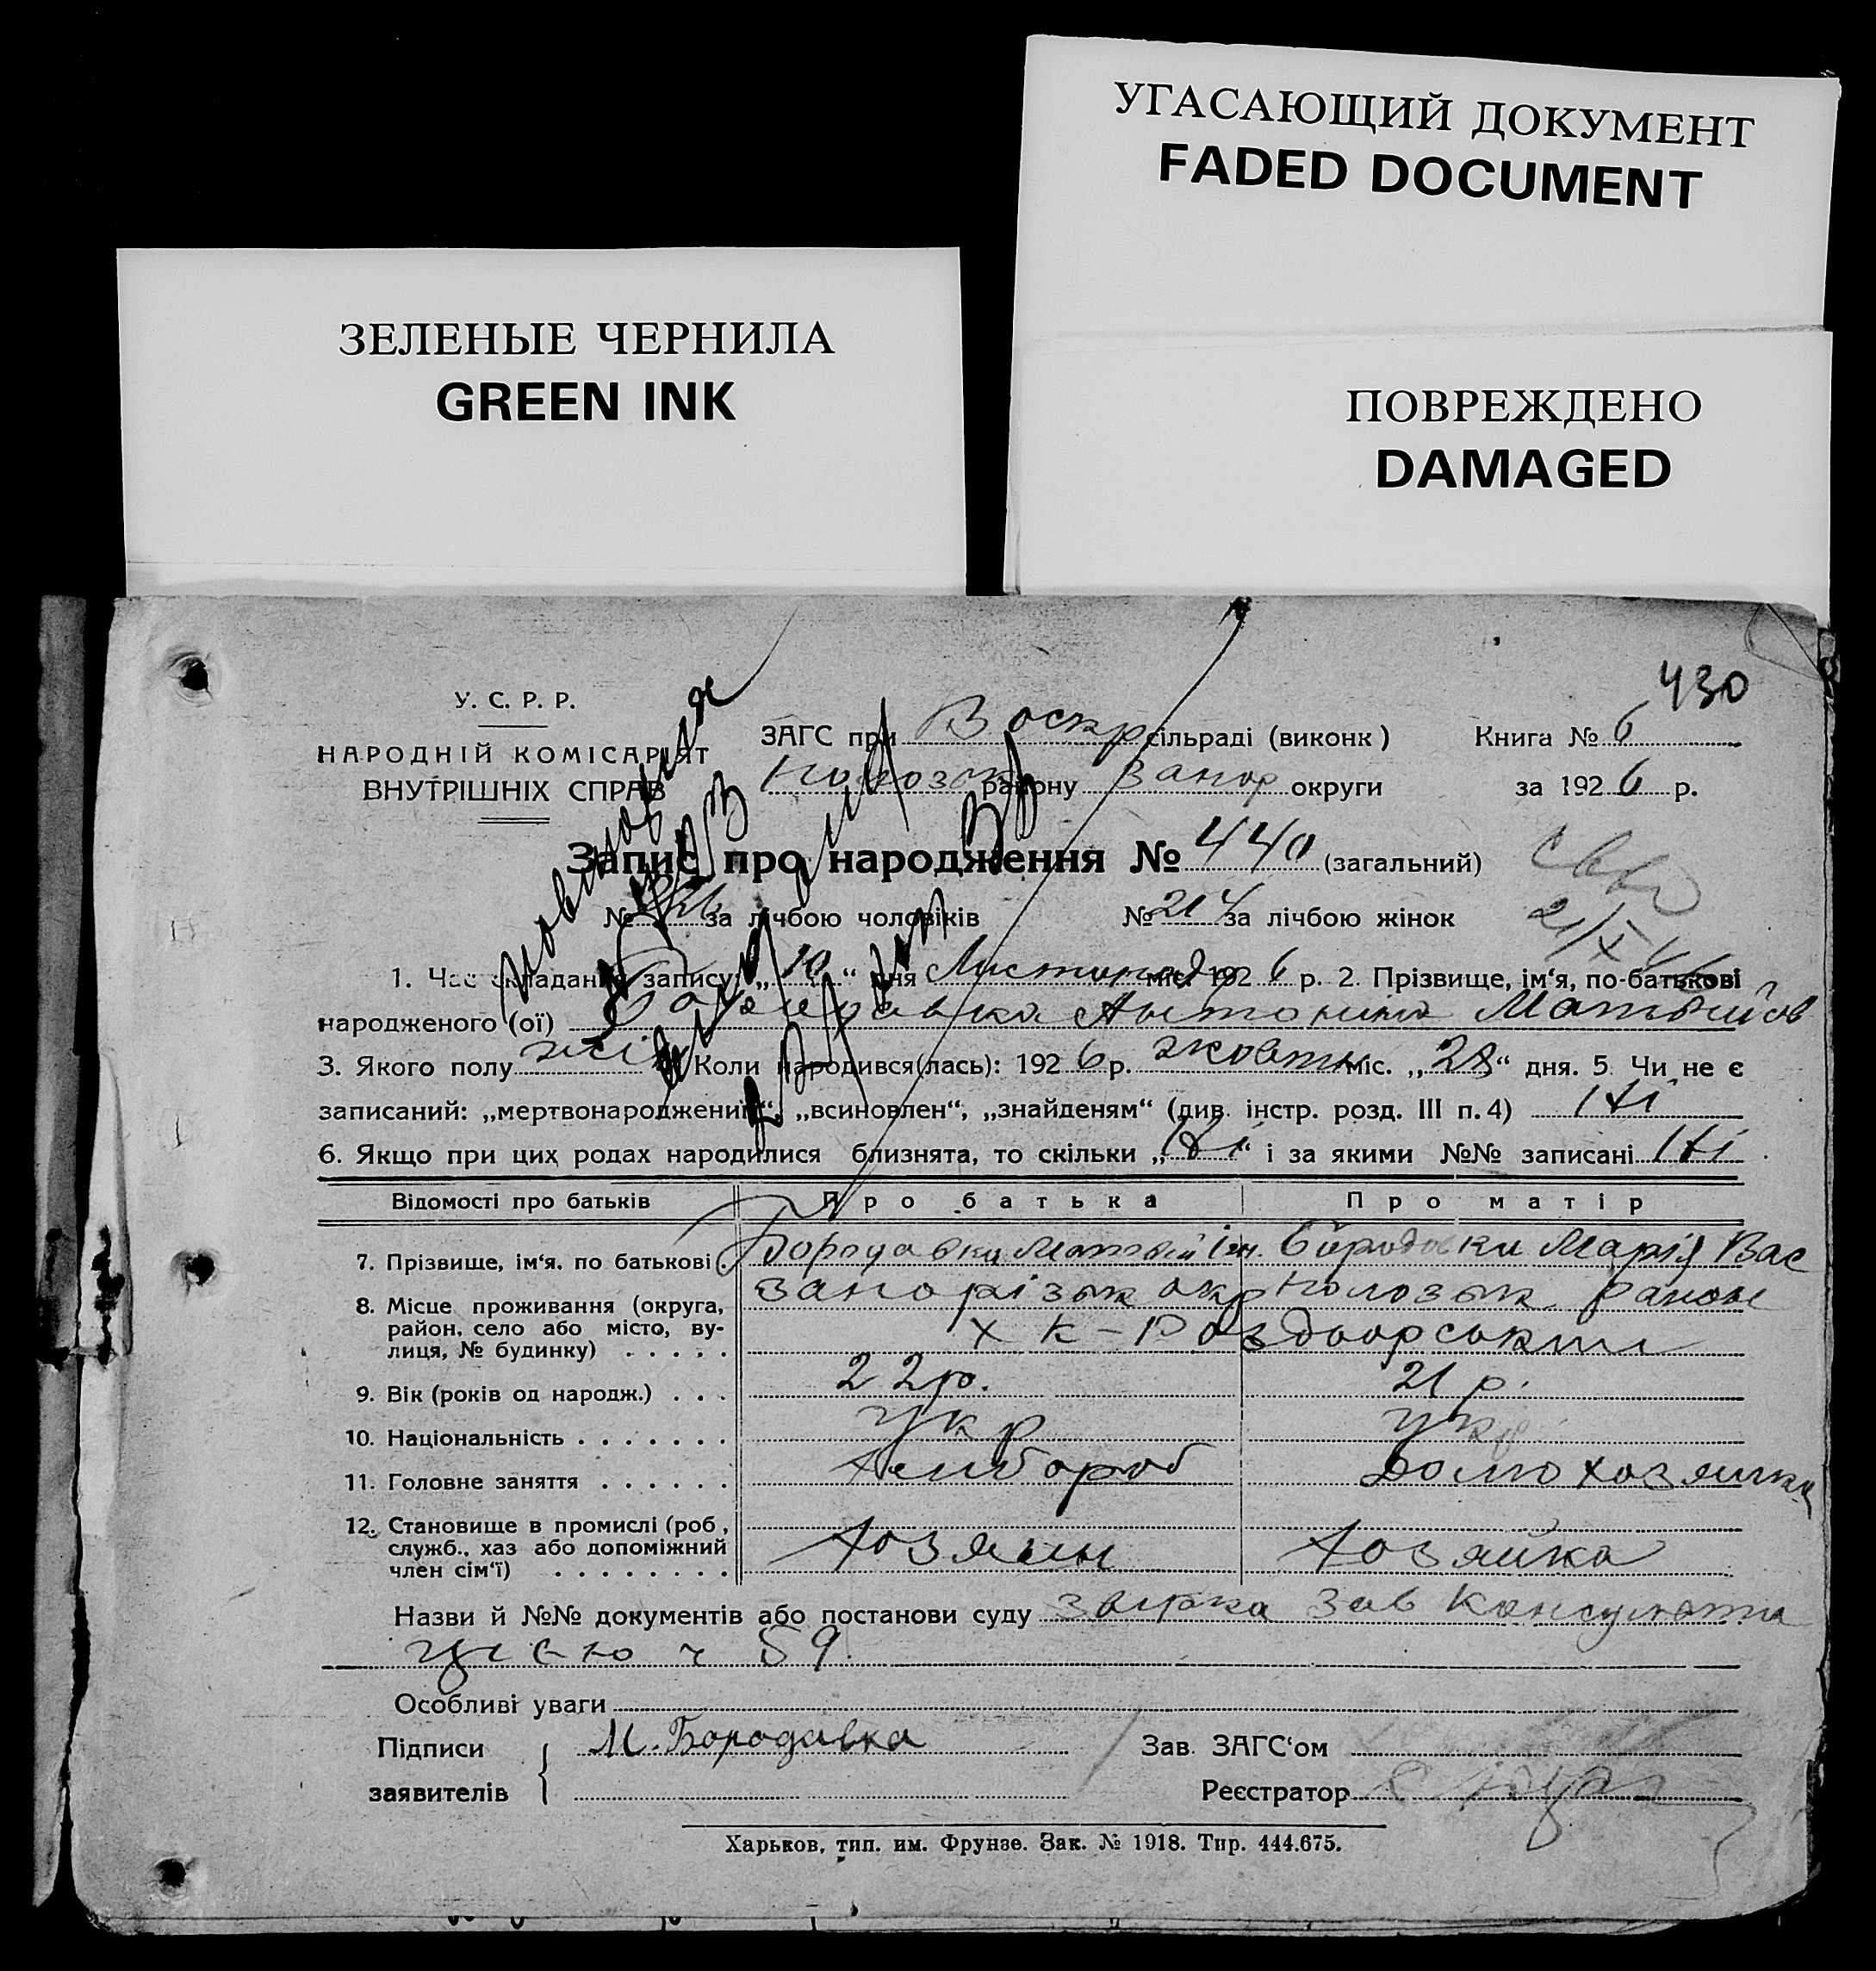 УГАСАЮЩИЙ ДОКУМЕНТ
FADED DOCUMENT
ЗЕЛЕНЫЕ ЧЕРНИЛА
GREEN INK
ПОВРЕЖДЕНО
DAMAGED
430
У. С. Р. Р.
НАРОДНІЙ КОМІСАРІЯТ
ВНУТРІШНІХ СПРАВ
ЗАГС при Воскр сільраді (виконк)
району Запор округи
Книга № 6
за 1926 р.
Запис про народження № 440 (загальний)
№ за лічбою чоловіків № 214 за лічбою жінок
21/X
1. Час складання запису: „10“ дня Листопада міс. 1926 р. 2. Прізвище, ім‘я, по-батькові
народженого (ої) Бородавка Антонина Матвийов
3. Якого полу жін Коли народився(лась): 1926 р. жовтн міс. „28“ дня. 5. Чи не є
записаний: „мертвонароджений“, „всиновлен“, „знайденям“ (див. інстр. розд. III п. 4) Ні
6. Якщо при цих родах народилися близнята, то скільки „Ні“ і за якими №№ записані Ні
Відомості про батьків Про батька Про матір
7. Прізвище, ім‘я, по батькові Бородавка Матвій Бородавка Марія Вас
8. Місце проживання (округа, район, село або місто, вулиця, № будинку) Запорізьк окр район
х К-Роздорськи
9. Вік (років од народж.) 22 р. 21 р.
10. Національність укр укр
11. Головне заняття хлибороб Домохозяйка
12. Становище в промислі (роб, служб., хаз або допоміжний член сім‘ї) Хозяин Хозяйка
Назви й №№ документів або постанови суду зав Консульта
цією ч 59.
Особливі уваги
Підписи заявителів М. Бородавка
Зав. ЗАГС‘ом
Реєстратор
Харьков, тип. им. Фрунзе. Зак. № 1918. Тир. 444.675.